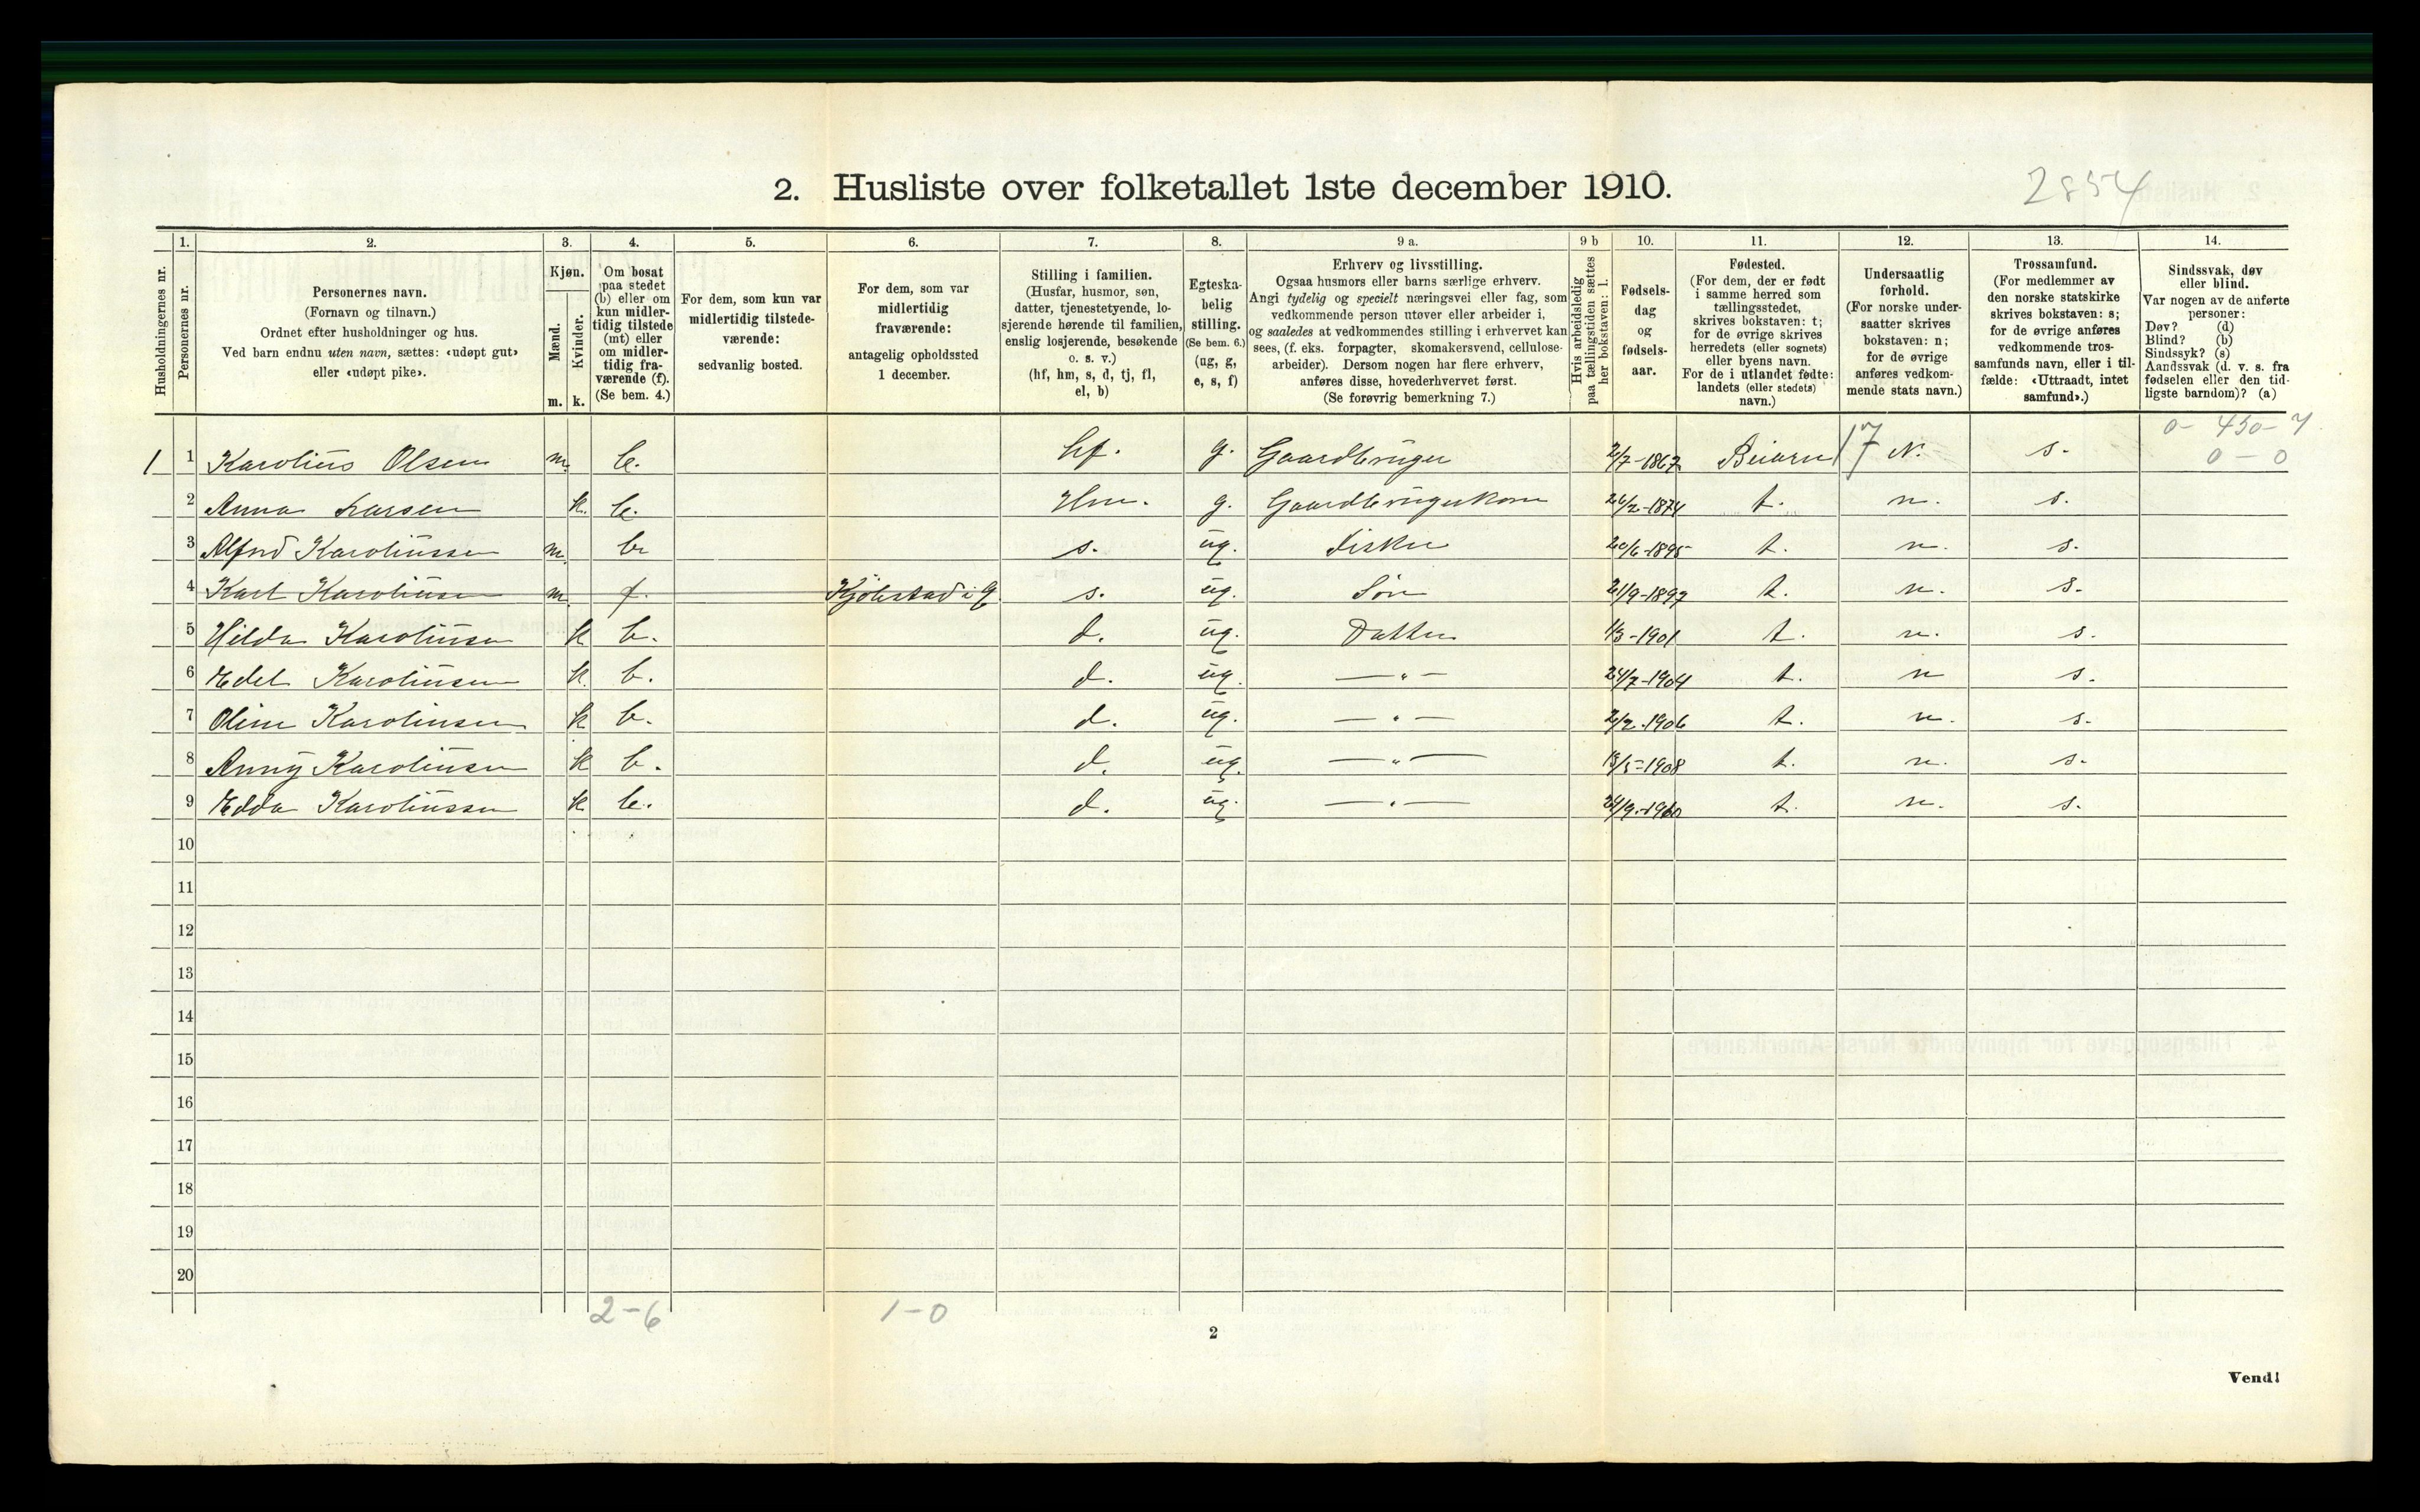 2. Husliste over folketallet 1ste december 1910.
2854
Husholdningernes nr.
1.
Personernes nr.
2.
Personernes navn.
(Fornavn og tilnavn.)
Ordnet efter husholdninger og hus.
Ved barn endnu uten navn, sættes: «udøpt gut»
eller «udøpt pike».
3.
Kjøn.
Mænd.
Kvinder.
m. k.
4.
Om bosat
paa stedet
(b) eller om
kun midler-
tidig tilstede
(mt) eller
om midler-
tidig fra-
værende (f).
(Se bem. 4.)
5.
For dem, som kun var
midlertidig tilstede-
værende:
sedvanlig bosted.
6.
For dem, som var
midlertidig
fraværende:
antagelig opholdssted
1 december.
7.
Stilling i familien.
(Husfar, husmor, søn,
datter, tjenestetyende, lo-
sjerende hørende til familien,
enslig losjerende, besøkende
o. s. v.)
(hf, hm, s, d, tj, fl,
el, b)
8.
Egteska-
belig
stilling.
(Se bem. 6.)
(ug, g,
e, s, f)
9 a.
Erhverv og livsstilling.
Ogsaa husmors eller barns særlige erhverv.
Angi tydelig og specielt næringsvei eller fag, som
vedkommende person utøver eller arbeider i,
og saaledes at vedkommendes stilling i erhvervet kan
sees, (f. eks. forpagter, skomakersvend, cellulose-
arbeider). Dersom nogen har flere erhverv,
anføres disse, hovederhvervet først.
(Se forøvrig bemerkning 7.)
9 b
Hvis arbeidsledig
paa tællingstiden sættes
her bokstaven: l.
10.
Fødsels-
dag
og
fødsels-
aar.
11.
Fødested.
(For dem, der er født
i samme herred som
tællingsstedet,
skrives bokstaven: t;
for de øvrige skrives
herredets (eller sognets)
eller byens navn.
For de i utlandet fødte:
landets (eller stedets)
navn.)
12.
Undersaatlig
forhold.
(For norske under-
saatter skrives
bokstaven: n;
for de øvrige
anføres vedkom-
mende stats navn.)
13.
Trossamfund.
(For medlemmer av
den norske statskirke
skrives bokstaven: s;
for de øvrige anføres
vedkommende tros-
samfunds navn, eller i til-
fælde: «Uttraadt, intet
samfund».)
14.
Sindssvak, døv
eller blind.
Var nogen av de anførte
personer:
Døv? (d)
Blind? (b)
Sindssyk? (s)
Aandssvak (d. v. s. fra
fødselen eller den tid-
ligste barndom)? (a)
0- 450-7
0-0
1 1 Karolius Olsen m. b. hf. g. Gaardbruger 2/7-1867 Beiarn 17 N. s.
2 Anna Larsen k. b. Hm. g. Gaardbrugerkone 26/2-1874 t. n. s.
3 Alfred Karoliussen m. b. s. ug. Fisker 20/6-1895 t. n. s.
4 Karl Karoliusen m. f. Kjölestad i G. s. ug. Søn 21/9-1897 t. n. s.
5 Hilda Karoliusen k b. d. ug. Datter 1/3-1901 t. n. s.
6 Edel Karoliusen k. b. d. ug. —"— 24/7-1904 t. n s.
7 Oline Karoliusen k b. d. ug. —"— 2/2-1906 t. n. s.
8 Anny Karoliusen k b. d. ug. —"— 18/5-1908 t. n. s.
9 Edda Karoliussen k b. d. ug. —"— 24/9-1910 t. n. s.
10
11
12
13
14
15
16
17
18
19
20
2-6 1-0
2
Vend!